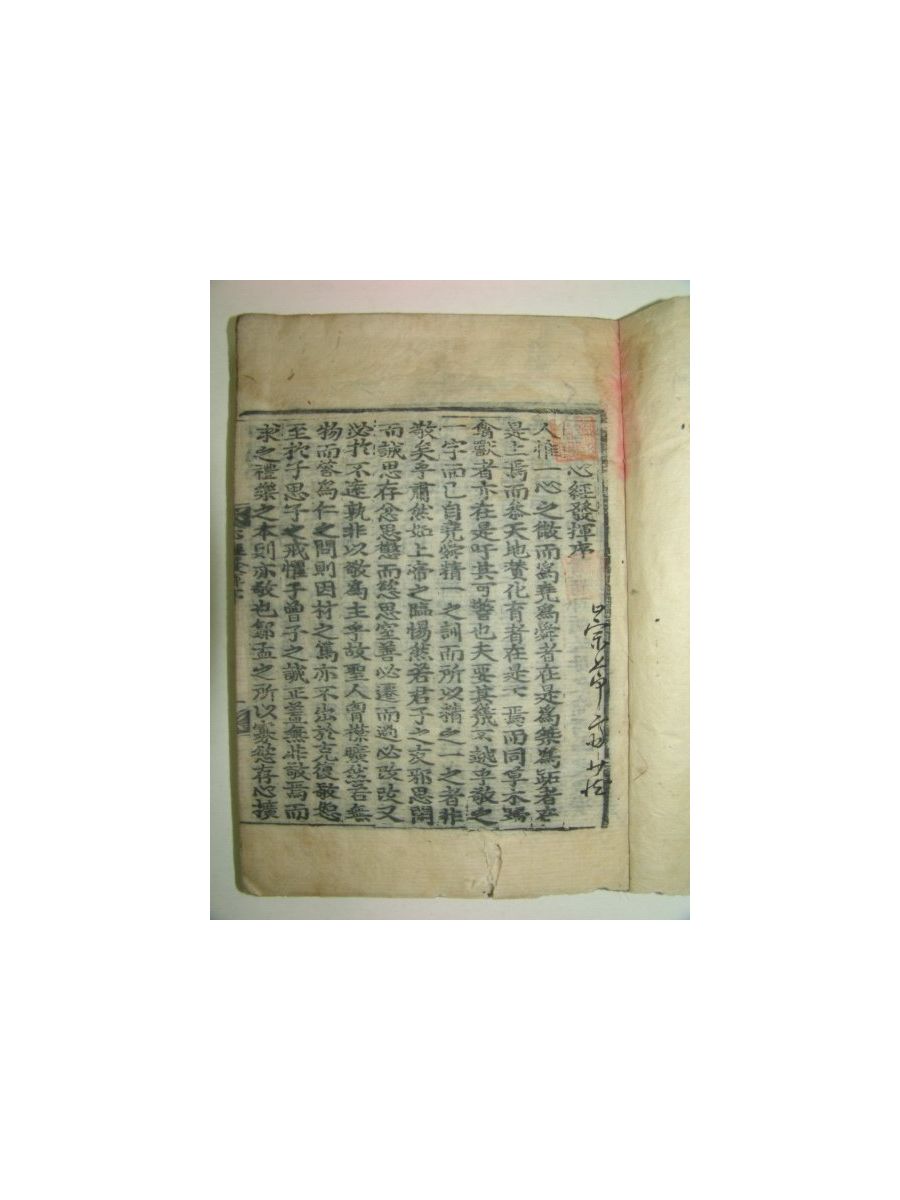 心經發揮序
人惟一心之微而爲堯爲舜者在是爲桀爲跖者在
是上焉而叅天地贊化育者在是下焉而同草木歸
禽獸者亦在是吁其可警也夫要其幾不越乎敬之
一字而已自堯舜精一之訓而所以精之一之者非
敬矣乎肅然如上帝之臨惕然若君子之友邪思閑
而誠思存忿思懲而慾思窒善必遷而過必改改又
必於不遠孰非以敬爲主乎故聖人胷襟曠然若無
物而答爲仁之問則因材之篤亦不出於克復敬恕
至於子思子之戒懼乎曾子之誠正蓋無非敬焉而
求之禮樂之本則亦敬也鄒孟之所以寡慾存心擴